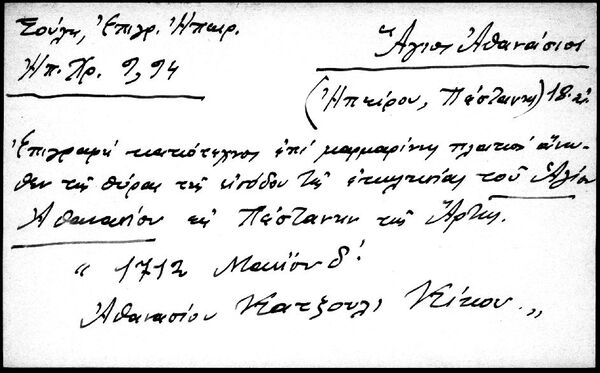 Σούλη, Ἐπιγρ. Ἠπειρ.
Ἠπ. Χρ. 9, 94
Ἅγιος Ἀθανάσιος
(Ἠπείρου, Πέστανη) 18. αἰ.
Ἐπιγραφὴ κακότεχνος ἐπὶ μαρμαρίνης πλακὸς ἄνω-
θεν τῆς θύρας τῆς εἰσόδου τῆς ἐκκλησίας τοῦ Ἁγίου
Ἀθανασίου εἰς Πέστανην τῆς Ἄρτης.
" 1712 Μαΐου δ'
Ἀθανασίου Κατζουλι Κίκου „